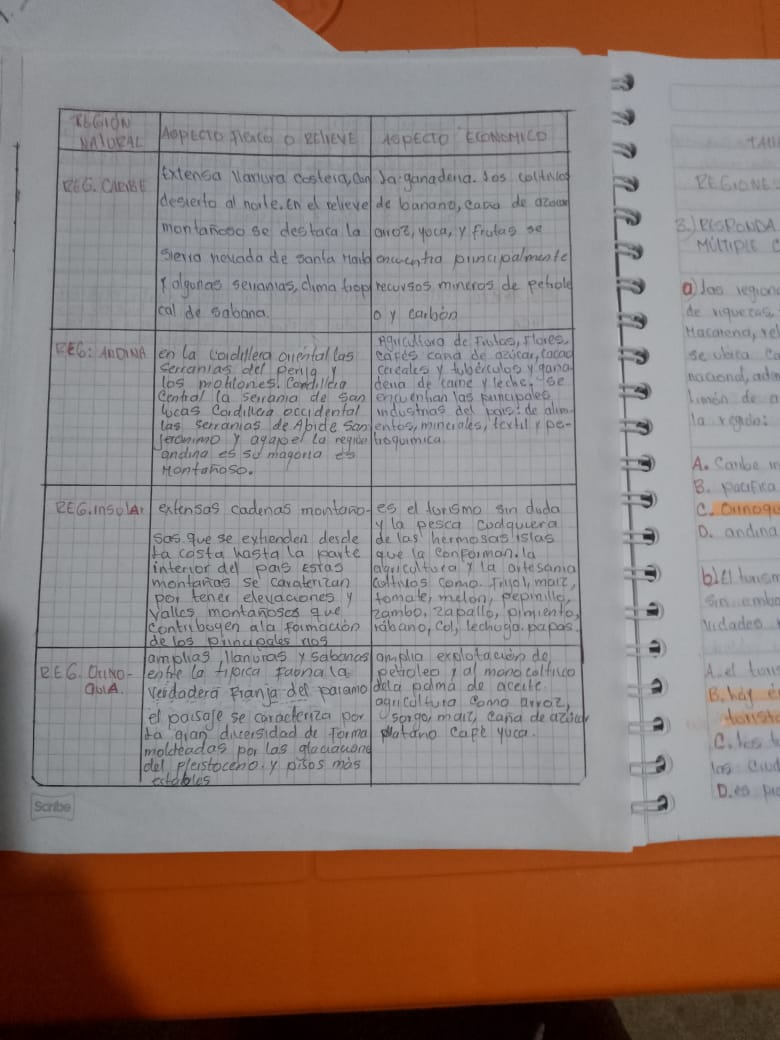 REGION NATURAL
ASPECTO FISICO O RELIEVE
ASPECTO ECONOMICO
REG. CARIBE
Extensa llanura costera, con
desierto al norte. En el relieve
montañoso se destaca la
sierra nevada de santa Marta
y algunas serranias, clima tropi
cal de sabana.
La ganaderia. Los cultivos
de banano, cana de azucar
arroz, yoca, y frutas se
encuentra principalmente
recursos mineros de petrole
o y carbón
REG: ANDINA
en la cordillera oriental las
serranias del perija y
los motilones. Cordillera
Central la serrania de san
lucas Cordillera occidental
las serranias de Abide San
Jeronimo y ayapel la region
andina es su mayoria es
Montañoso.
Agricultura de Frutas, Flores,
cafés cana de azúcar, cacao
cereales y tubérculos y gana
deria de carne y leche. se
encuentran las principales
industrias del pais: de alim-
entos, minerales, textil y pe-
troquimica.
REG. INSULAR
extensas cadenas montaño-
sas que se extienden desde
la costa hasta la parte
interior del pais Estas
montañas se caraterizan
por tener elevaciones y
valles montañosos que
contribuyen ala formación
de los principales rios
es el turismo sin duda
y la pesca cualquiera
de las hermosas islas
que la conforman. la
agricultura y la artesania
cultivos como. Frijol, maiz,
tomate, melon, pepinillo,
zambo, zapallo, pimiento,
rábano, col, lechuga. papas.
REG. ORINO-
QUIA.
amplias, llanuras y sabanas
entre la tipica faunala
verdadera Franja del paramo
el paisaje se caracteriza por
la gran diversidad de forma
moldeadas por las glaciacione
del pleistoceno. y pisos más
estables
amplia explotación de
petroleo y al monocoltivo
dela palma de aceite.
agricultura como arroz,
sorgo, maiz, caña de azúcar
platano cafe yuca.
Scribe
REGIONES
3.) RESPONDA
MÚLTIPLE
a) las region
de riquezas,
Macarena, rel
se ubica
nacional,
limón de a
la región:
A. Caribe
B. pacifica
C. Orinoqu
D. andina
b) El turism
sin emba
vidades
A. el
B. hay
C. los
las ciud
D. es